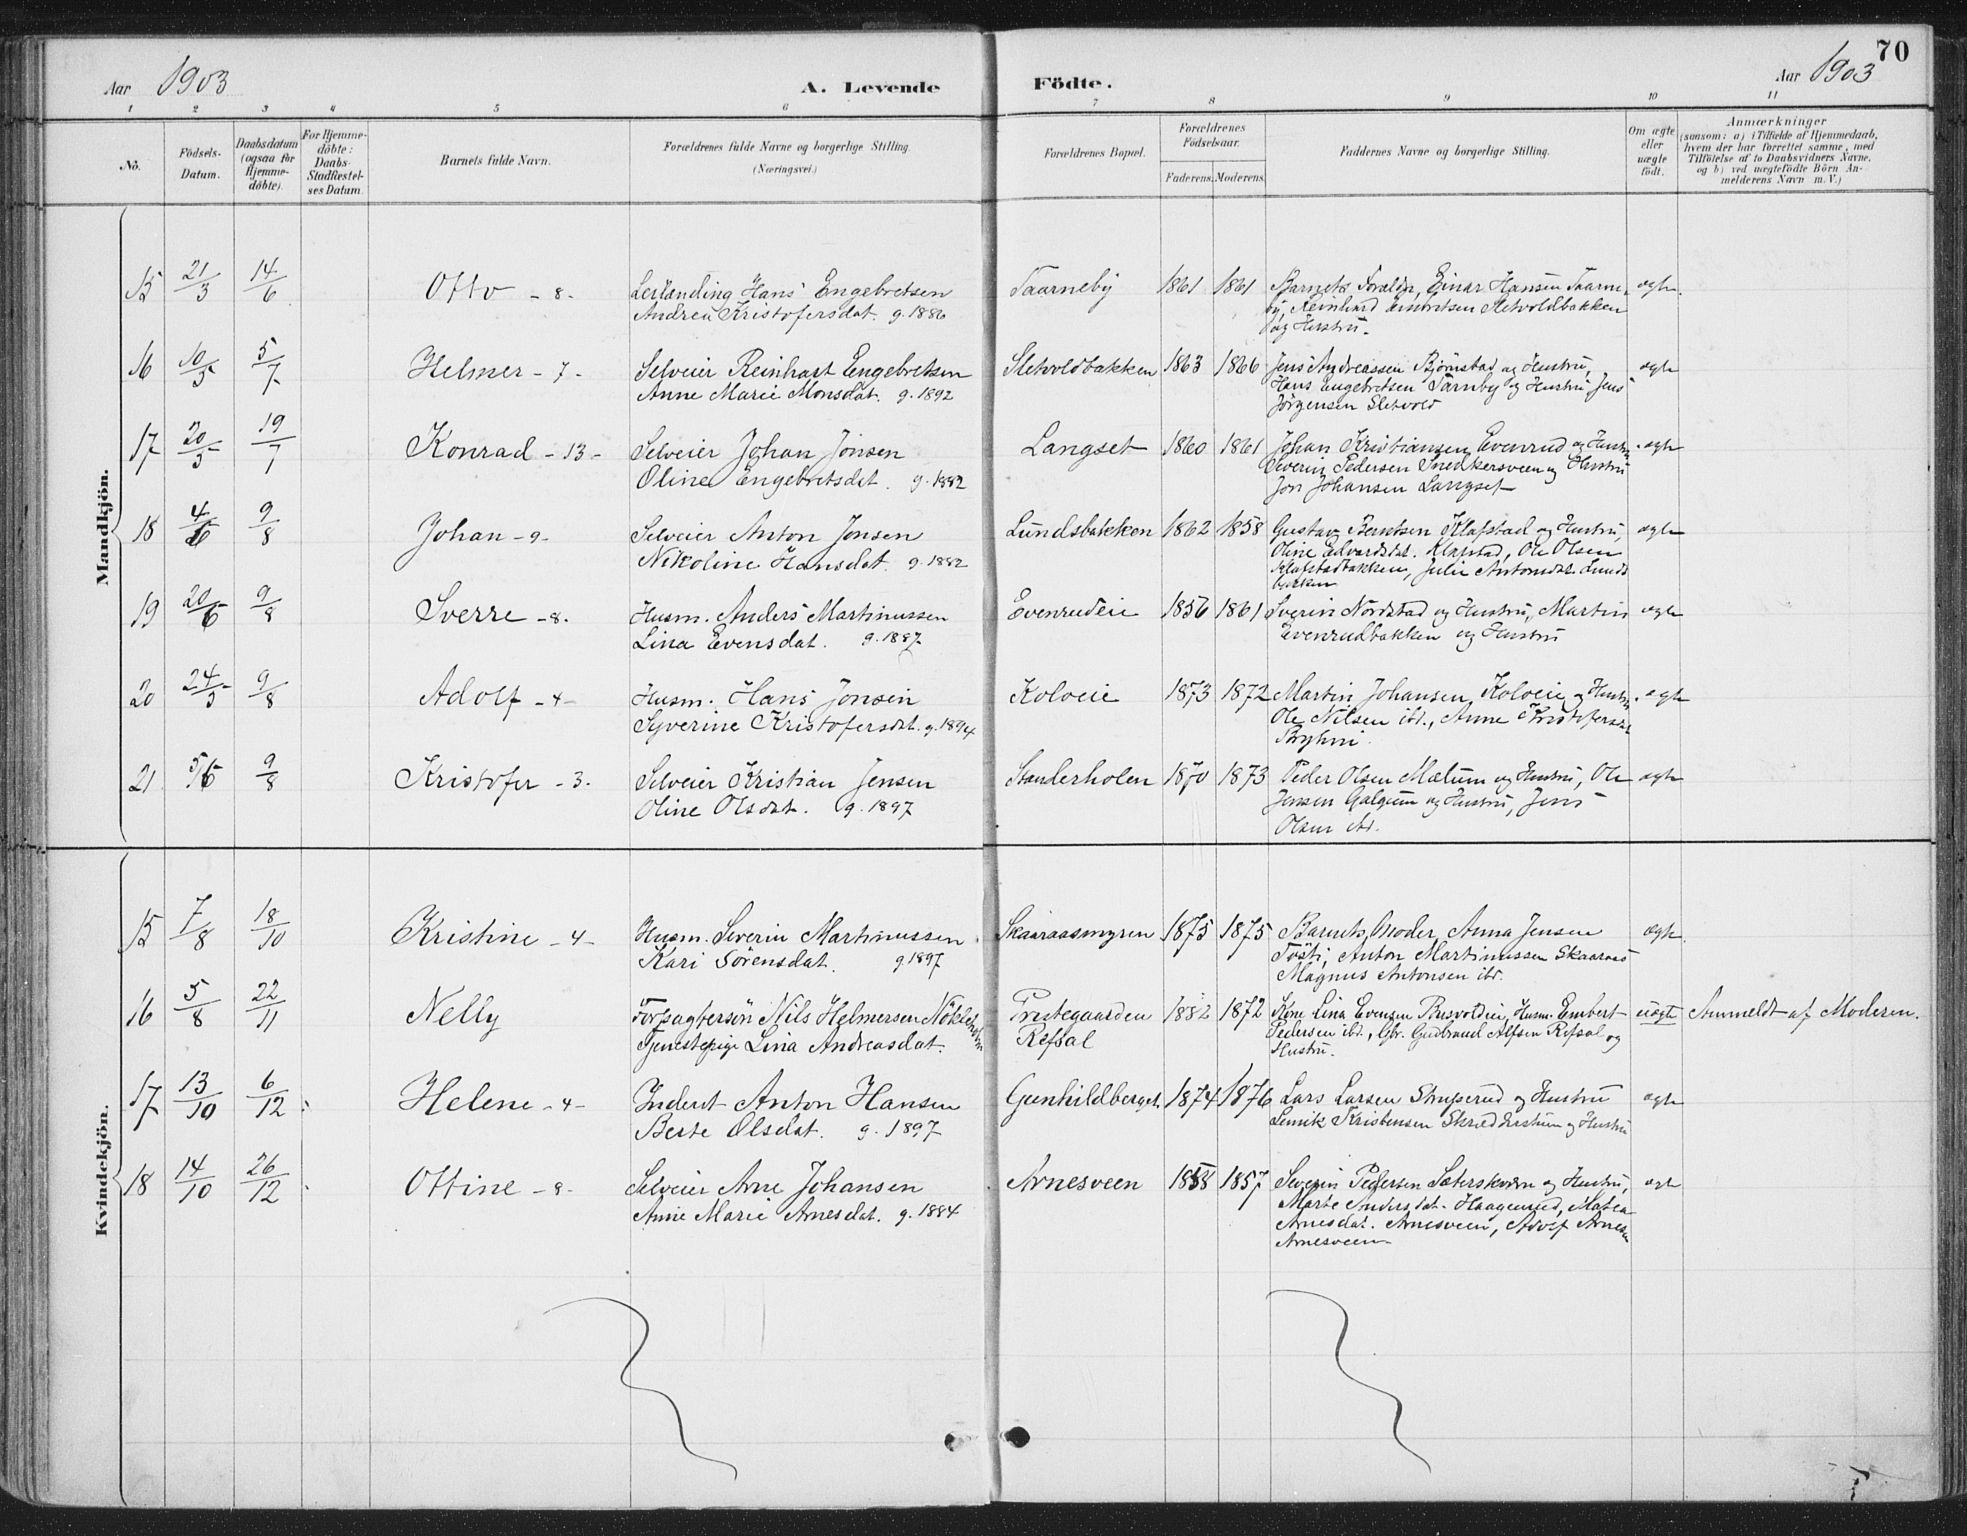 70
Aar 1903
A. Levende Födte.
Aar 1903
1 2 3 4 5 6 7 8 9 10 11
No.
Födsels-
Datum.
Daabsdatum
(ogsaa for
Hjemme-
döbte).
For Hjemme-
döbte:
Daabs-
Stadfæstel-
ses Datum.
Barnets fulde Navn.
Forældrenes fulde Navne og borgerlige Stilling.
(Næringsvei.)
Forældrenes Bopæl.
Forældrenes
Födselsaar.
Faderens. Moderens.
Faddernes Navne og borgerlige Stilling.
Om ægte
eller
uægte
födt.
Anmærkninger
(saasom: a) i Tilfælde af Hjemmedaab,
hvem der har forrettet samme, med
Tilföielse af to Daabsvidners Navne,
og b) ved uægtefödte Börn An-
melderens Navn m. V.)
Mandkjön.
15 21/3 14/6 Otto - 8 - Hans Engebretsen Taarneby 1861 1861 Barnets Forældre, Einar Hansen Taarne-
Andrea Kristofersdat. g. 1886 by, Reinhard Sletvoldbakken
og Hustru.
16 10/5 5/7 Helmer - 7 - Selveier Reinhart Engebretsen Sletvoldbakken 1863 1866 Jens Andreassen Bjørnstad og Hustru, ægte
Anne Marie Monsdat. g. 1892 Hans Engebretsen Tarnby og Hustru, Jens
Jörgensen Sletvold
17 20/5 19/7 Konrad - 13 - Selveier Johan Jonsen Langset 1860 1861 Johan Kristiansen Evenrud og Hustru ægte
Oline Engebretsdat. g. 1882 Severin Pedersen Snedkersveen og Hustru
Jon Johansen Langset
18 4/6 9/8 Johan - 9 - Selveier Anton Jonsen Lundsbakken 1862 1858 Gustav Berntsen Klafstad og Hustru, ægte
Nikoline Hansdat. g. 1882 Oline Edvardsdat. Klafstad, Ole Olsen
Klafstadbakken, Julie Antonsdat. Lunds
bakken
19 20/6 9/8 Sverre - 8 - Husm. Anders Martinussen Evenrudeie 1856 1861 Sverin Nordstad og Hustru, Martin ægte
Lina Evensdat. g. 1887 Evenrudbakken og Hustru
20 24/5 9/8 Adolf - 4 - Husm. Hans Jonsen Koloeie 1873 1872 Martin Johansen Koloeie og Hustru ægte
Syverine Kristofersdat. g. 1894 Ole Nilsen ibd., Anne Kristofersdat
21 5/6 9/8 Kristofer - 3 - Selveier Kristian Jensen Standerholen 1870 1873 Peder Olsen Mælum og Hustru, Ole ægte
Oline Olsdat. g. 1897 Jensen Galgum og Hustru, Jens
Olsen ibd.
Kvindekjön.
15 7/8 18/10 Kristine - 4 - Husm. Severin Martinussen Skaaraasmyren 1875 1875 Barnets Moder, Anna Jensen ægte
Kari Sörensdat. g. 1897 Anton Martinussen Skaaraas
Magnus Antonsen ibd.
16 5/8 22/11 Nelly Forpagtersön Nils Helmersen Prestegaarden 1882 1872 Kone Lina Evensen Busvoldeie, Husm. Embert uægte Anmeldt af Moderen.
Tjenestepige Lina Andreasdat. Refsal Pedersen ibd., Gbr. Gudbrand Alfsen Refsal og
Hustru.
17 13/10 6/12 Helene - 4 - Inderst Anton Hansen Gunhildberget. 1874 1876 Lars Larsen Struperud og Hustru ægte
Berte Olsdat. g. 1897 Lennik Kristensen Skredderstuen og Hustru
18 14/10 26/12 Ottine - 8 - Selveier Arne Johansen Arnesveen 1858 1857 Severin Pedersen Sæterskværn og Hustru, ægte
Anne Marie Arnesdat. g. 1884 Marte Andersdat. Haagenrud, Matea
Arnesdat. Arnesveen, Adolf Arnesen
Arnesveen